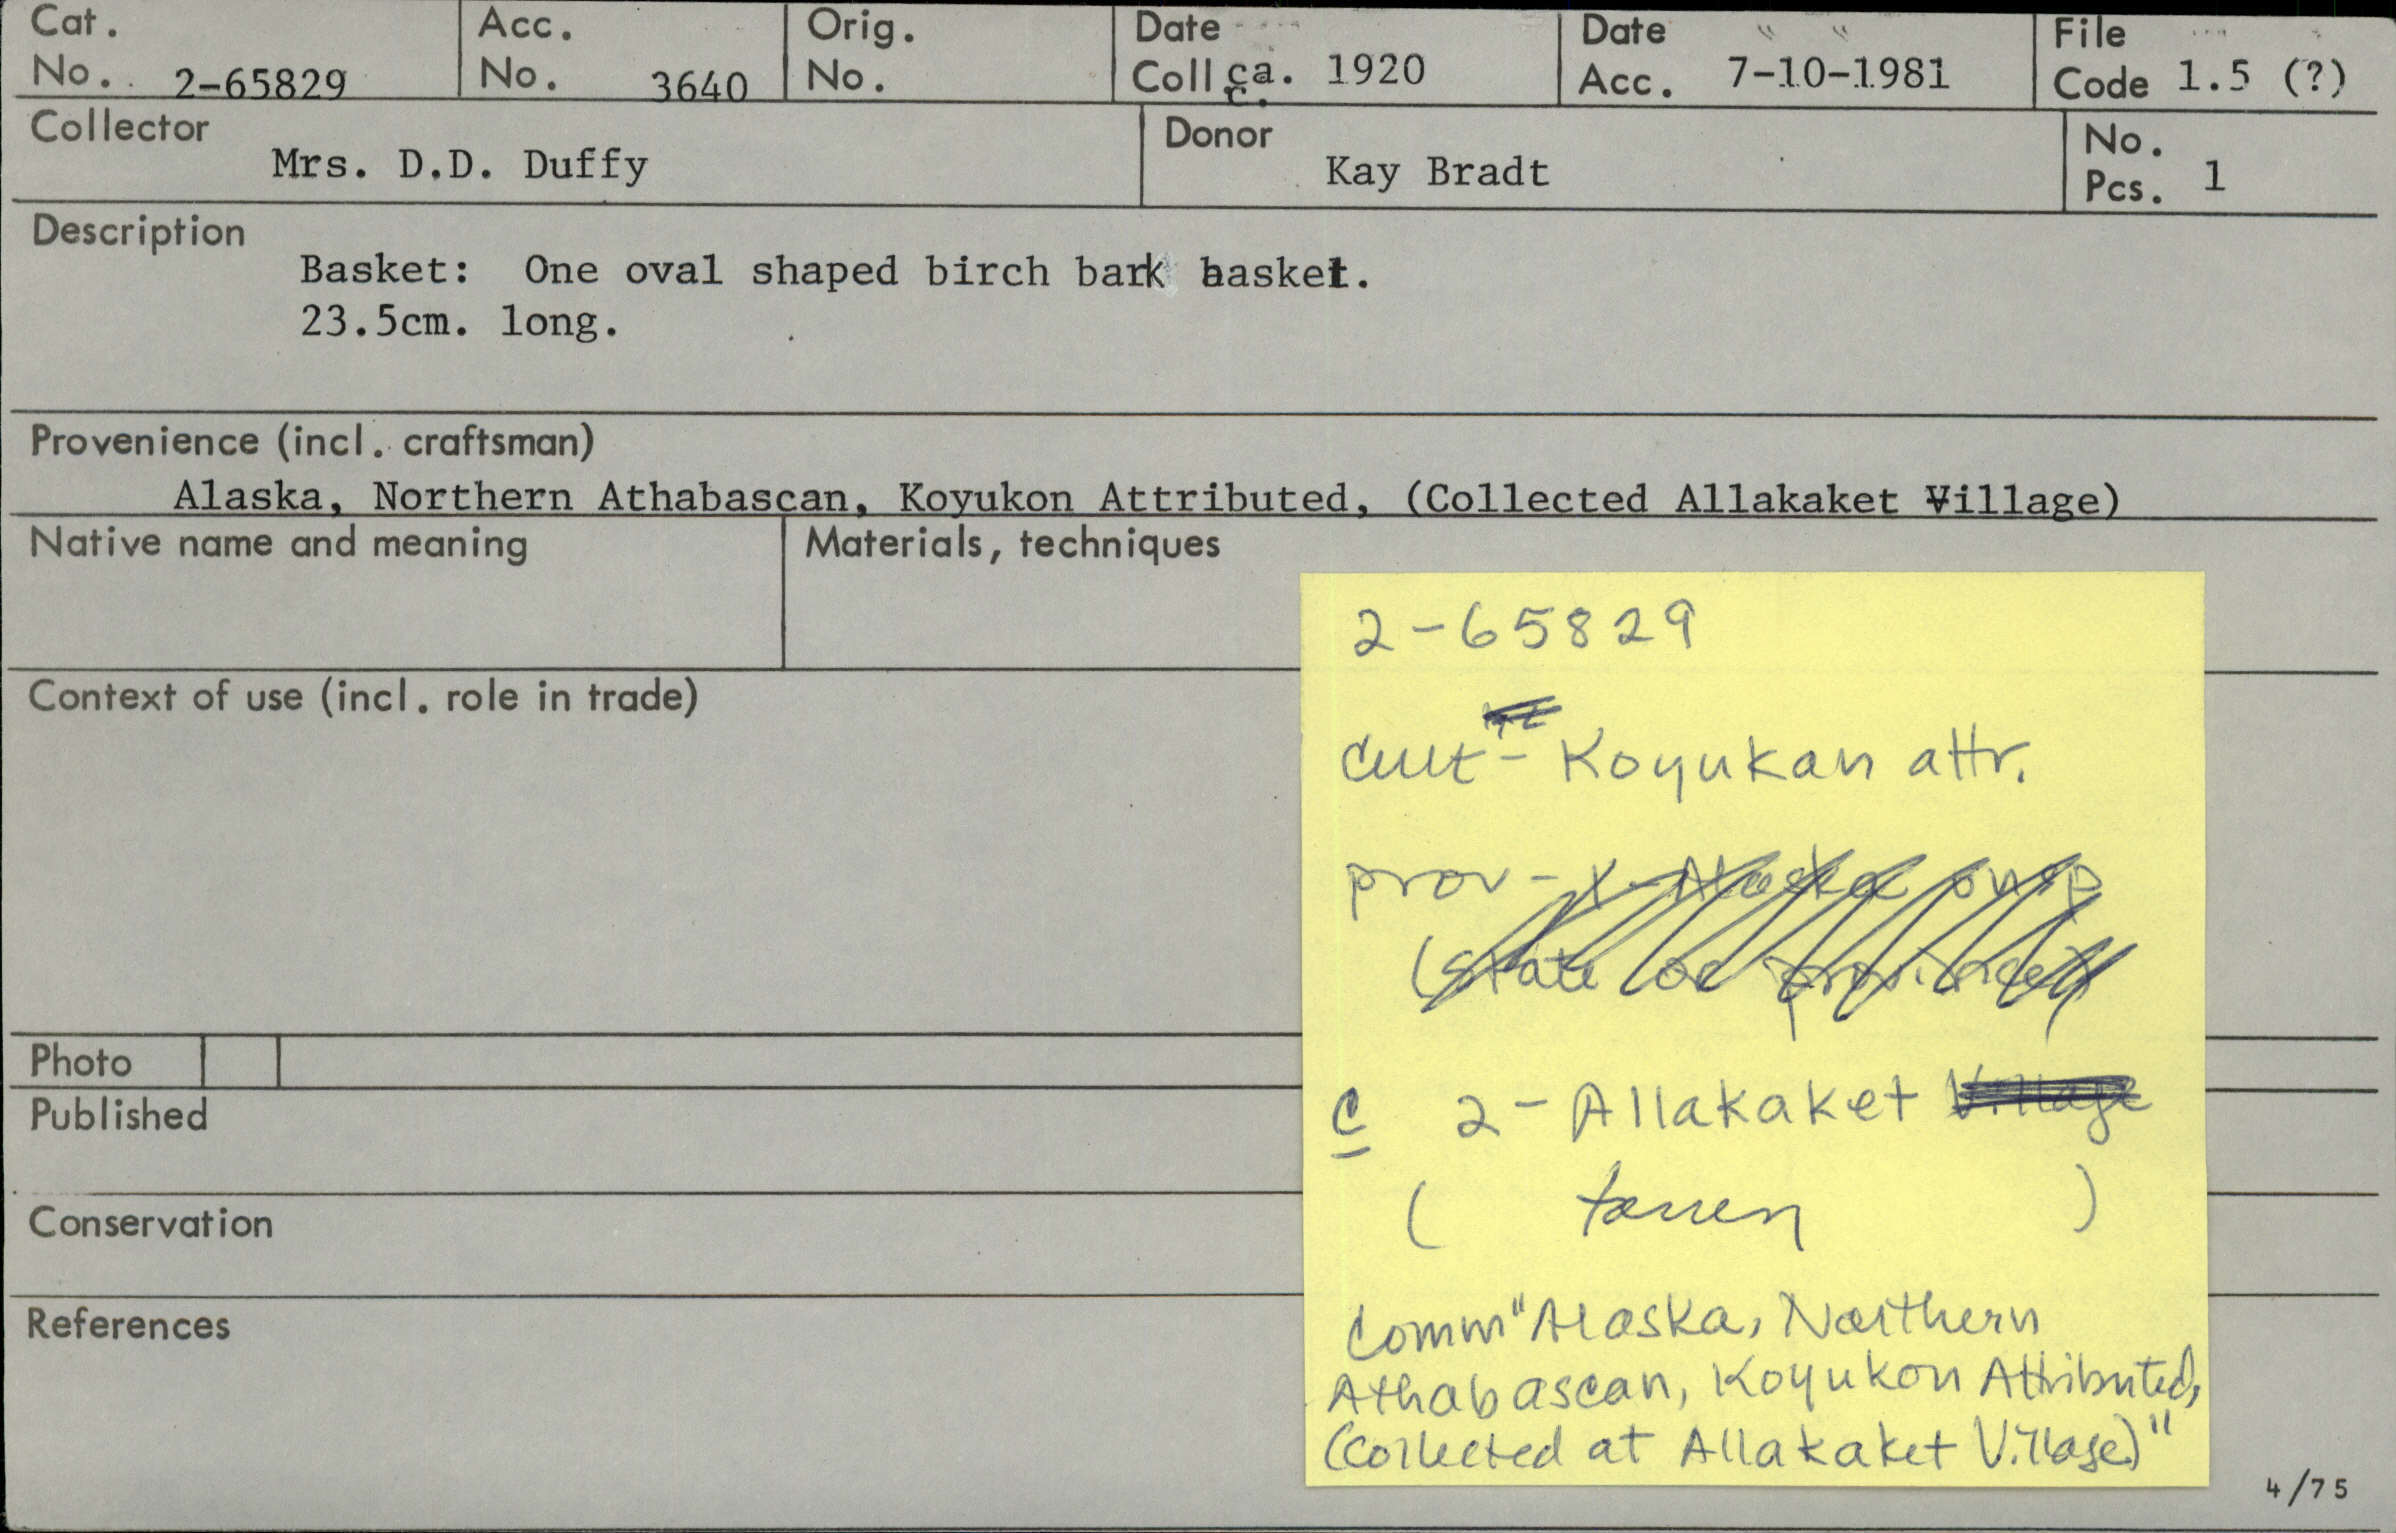 Cat. No. 2-65829
Acc. No. 3640
Orig. No.
Date Coll. ca. 1920
Date Acc. 7-10-1981
File Code 1.5 (?)
Collector
Mrs. D.D. Duffy
Donor
Kay Bradt
No. Pcs. 1
Description
Basket: One oval shaped birch bark basket.
23.5cm. long.
Provenience (incl. craftsman)
Alaska, Northern Athabascan, Koyukon Attributed, (Collected Allakaket Village)
Native name and meaning
Materials, techniques
Context of use (incl. role in trade)
Photo
Published
Conservation
References
2-65829
cult - Koyukan attr.
prov - Alaska
(state or province)
C 2- Allakaket Village
( )
Comm "Alaska, Northern
Athabascan, Koyukon Attributed,
(Collected at Allakaket Village)"
4/75